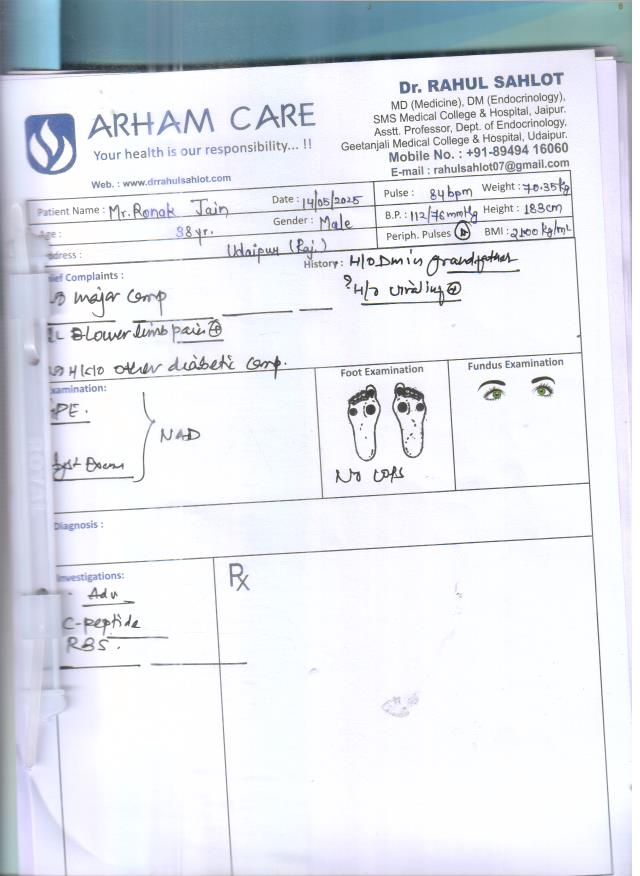 ARHAM CARE
Your health is our responsibility... !!
Web. : www.drrahulsahlot.com
Dr. RAHUL SAHLOT
MD (Medicine), DM (Endocrinology),
SMS Medical College & Hospital, Jaipur.
Asstt. Professor, Dept. of Endocrinology,
Geetanjali Medical College & Hospital, Udaipur.
Mobile No. : +91-89494 16060
E-mail : rahulsahlot07@gmail.com
Patient Name : Mr. Ronak Jain Date : 14/05/2025
Age : 38 yr. Gender : Male
ddress : Udaipur (Raj.)
Pulse : 84 bpm Weight : 70.35kg
B.P. : 112/76 mmHg Height : 183cm
Periph. Pulses BMI :
hief Complaints :
major Comp
lower limb pain
other diabetic comp.
History : H/O DM in grandfather
? H/o
xamination:
PE.
NAD
Foot Examination
No
Fundus Examination
Diagnosis :
nvestigations:
Adv
C-peptide
RBS.
Rx